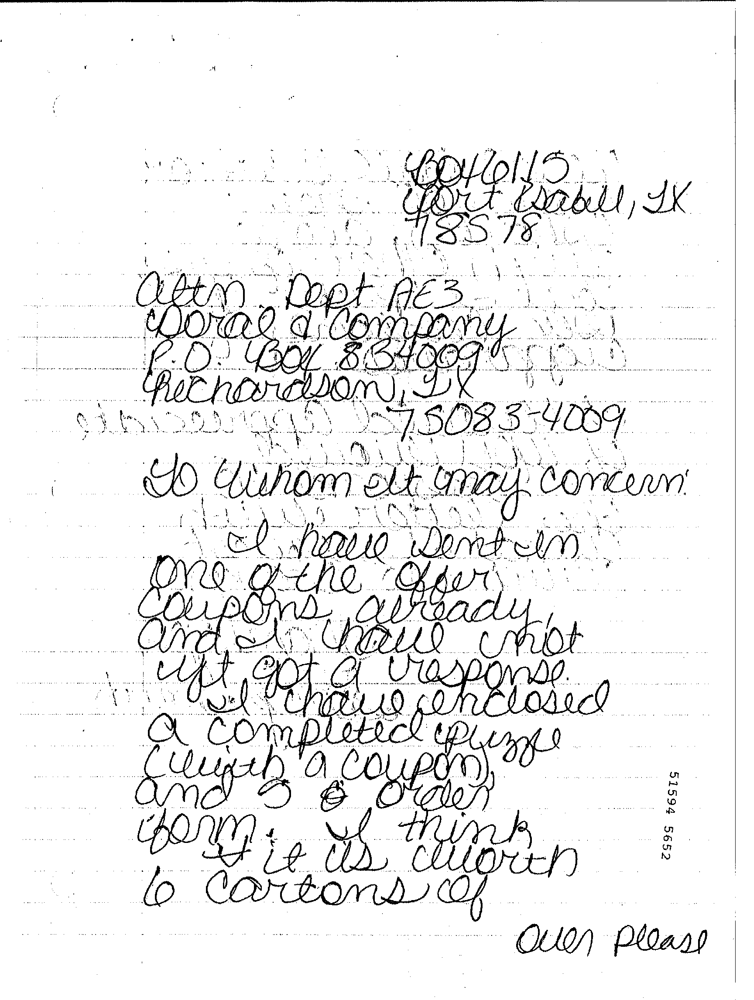 Box 6115
Port Isabell, TX
78578
Attn Dept AE3
Doral & Company
P.O. Box 834009
Richardson, TX
75083-4009
To Whom It may concern:
I have sent in
one of the offer
coupons already,
and I have not
yet got a response.
I have enclosed
a completed puzzle
(with a coupon),
and 5 order
form. I think
it is worth
6 cartons of
Over please
51594 5652